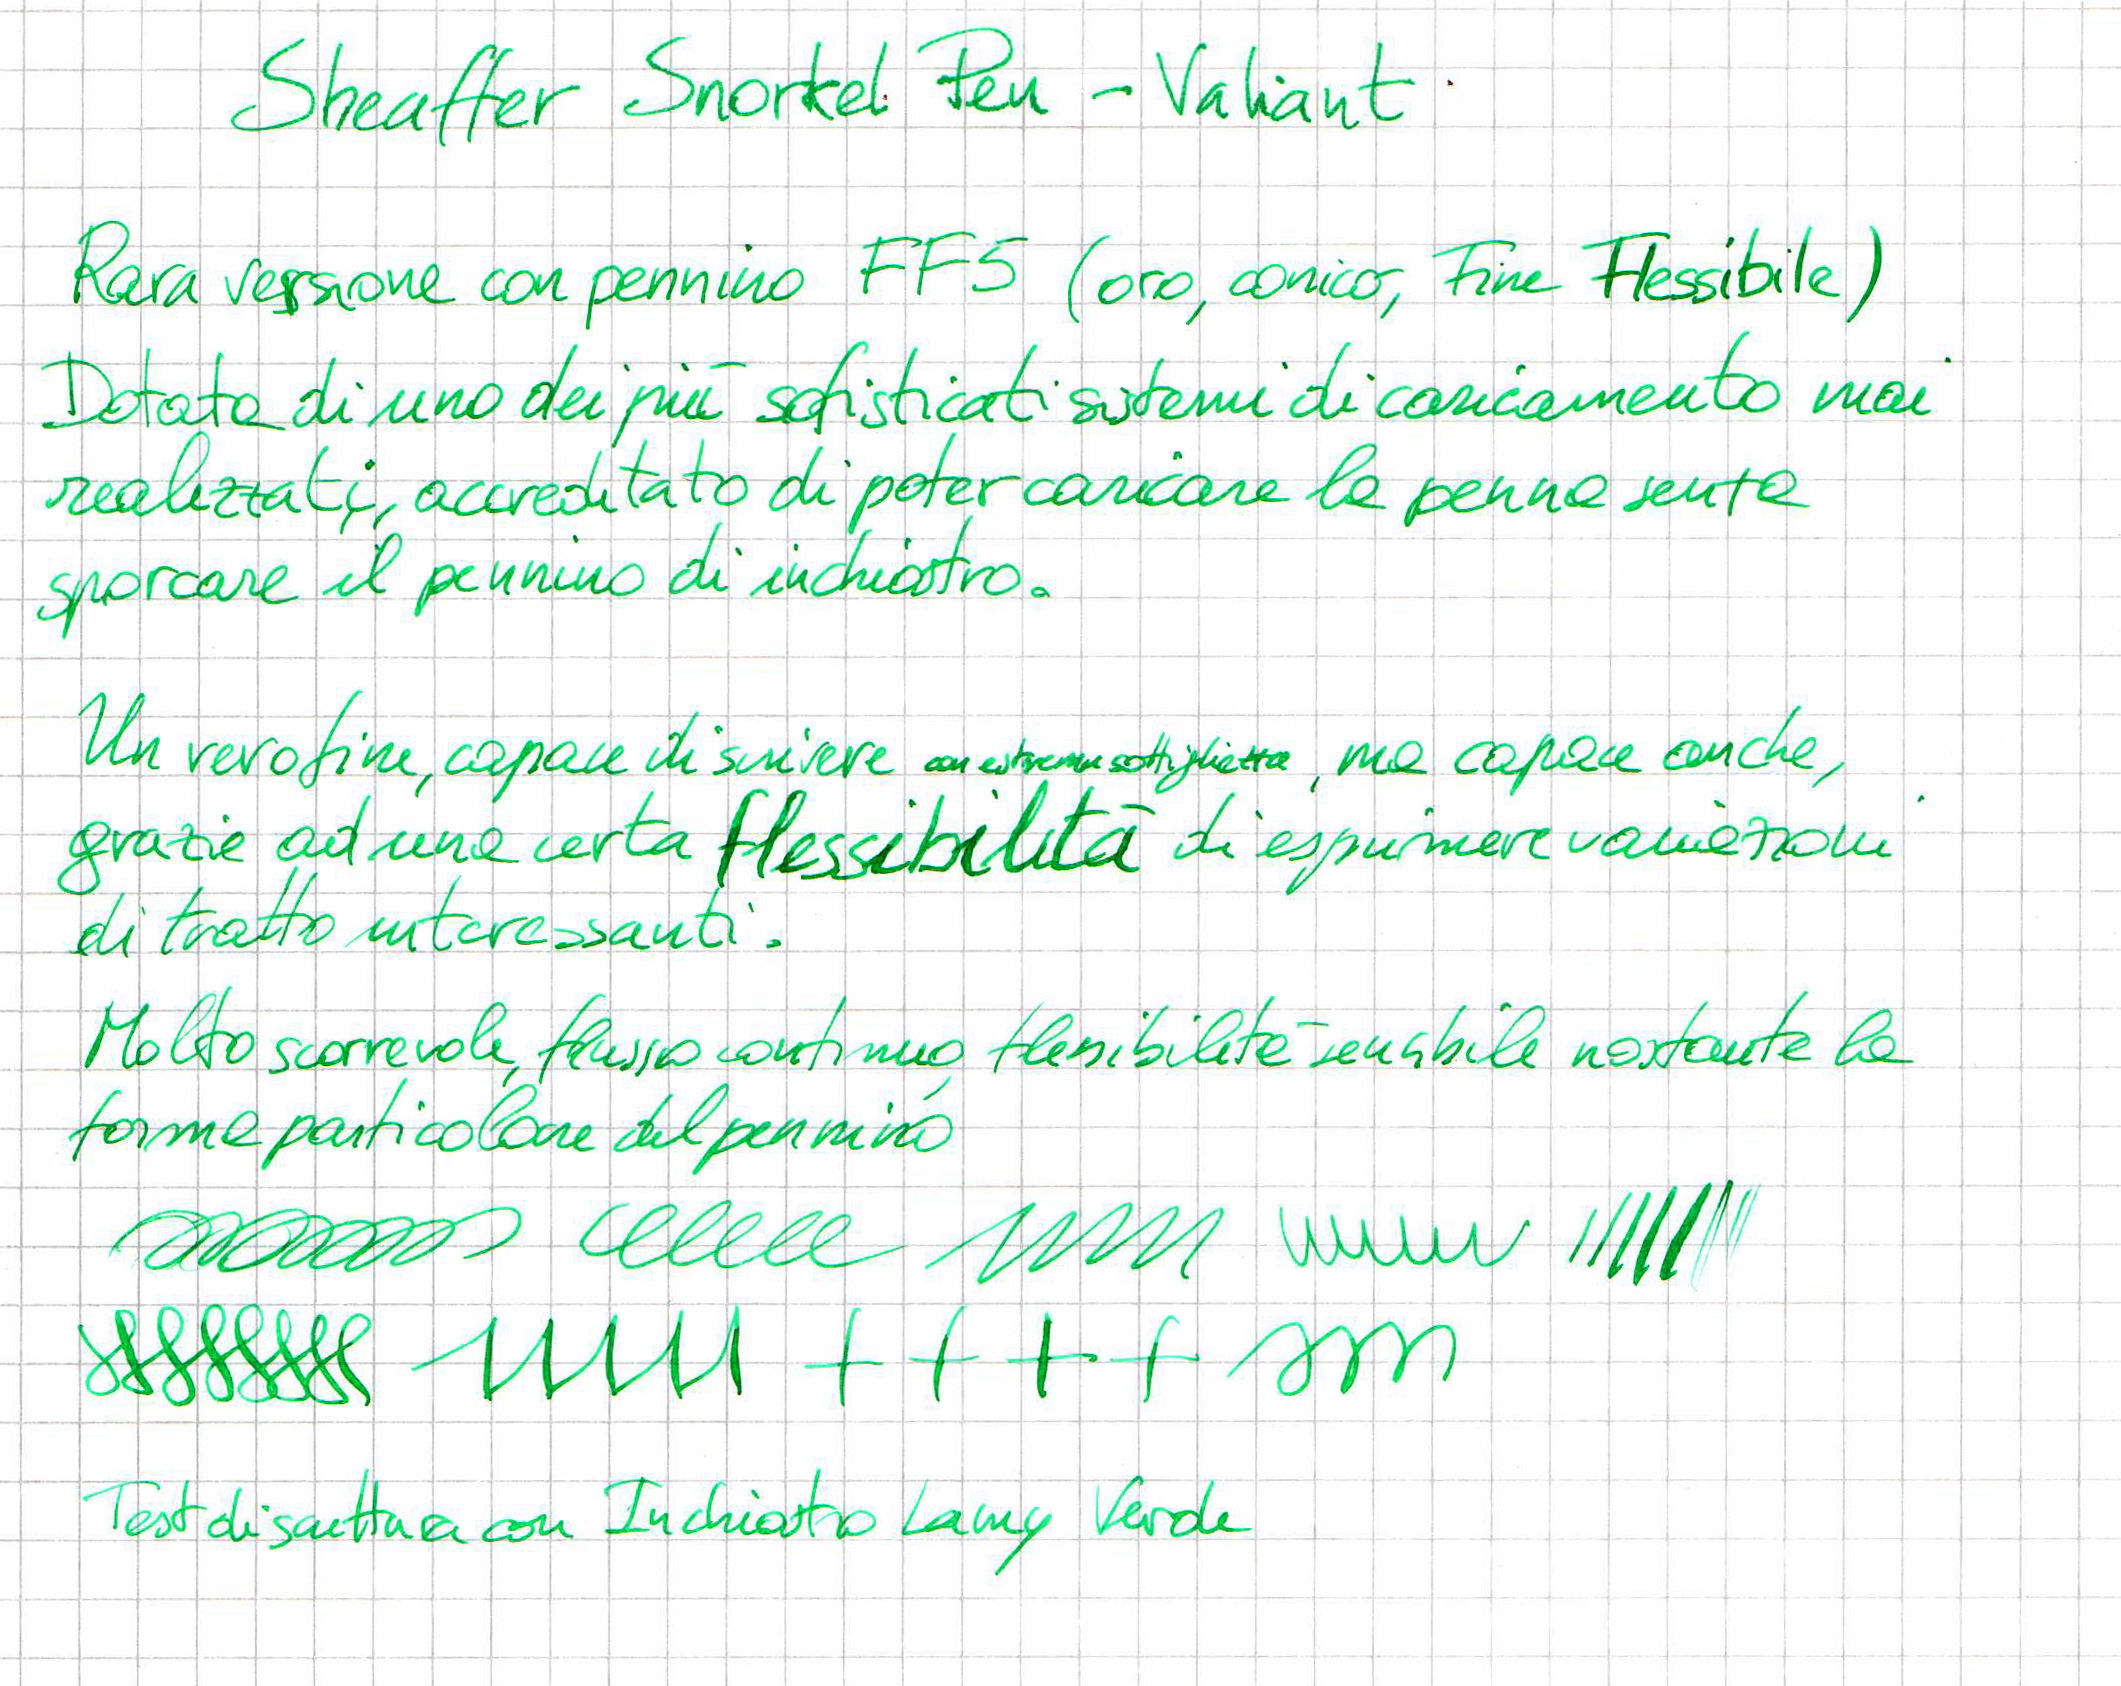 Sheaffer Snorkel Pen - Valiant
Rara versione con pennino FF5 (oro, conico, Fine Flessibile)
Dotata di uno dei più sofisticati sistemi di caricamento mai
realizzati, accreditato di poter caricare la penna senza
sporcare il pennino di inchiostro.
Un vero fine, capace di scrivere con estrema sottigliezza, ma capace anche,
grazie ad una certa flessibilità di esprimere variazioni
di tratto interessanti.
Molto scorrevole, flusso continuo, flessibilità sensibile nostante la
forma particolare del pennino
Test di scrittura con Inchiostro Lamy Verde